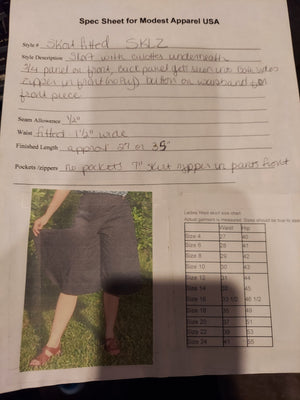 Spec Sheet for Modest Apparel USA
Style # Skirt fitted SKLZ
Style Description Skort with culottes underneath
3/4 panel on front, back panel gets sewn into both sides
zipper in front (only) button on waistband
front piece
Seam Allowance 1/2"
Waist fitted 1 1/2" wide
Finished Length approx 27 or 35"
Pockets/zippers no pockets 7" skirt zipper in pants front
Ladies fitted skirt size chart
Actual garment is measured. Sizes should be true to
Waist Hip
Size 4 40
Size 6 28 41
Size 8 29 42
Size 10 30 43
Size 12 31 44
Size 14 45
Size 16 33 1/2 46 1/2
Size 18 35 48
Size 20 37 51
Size 22 39 53
Size 24 41 55